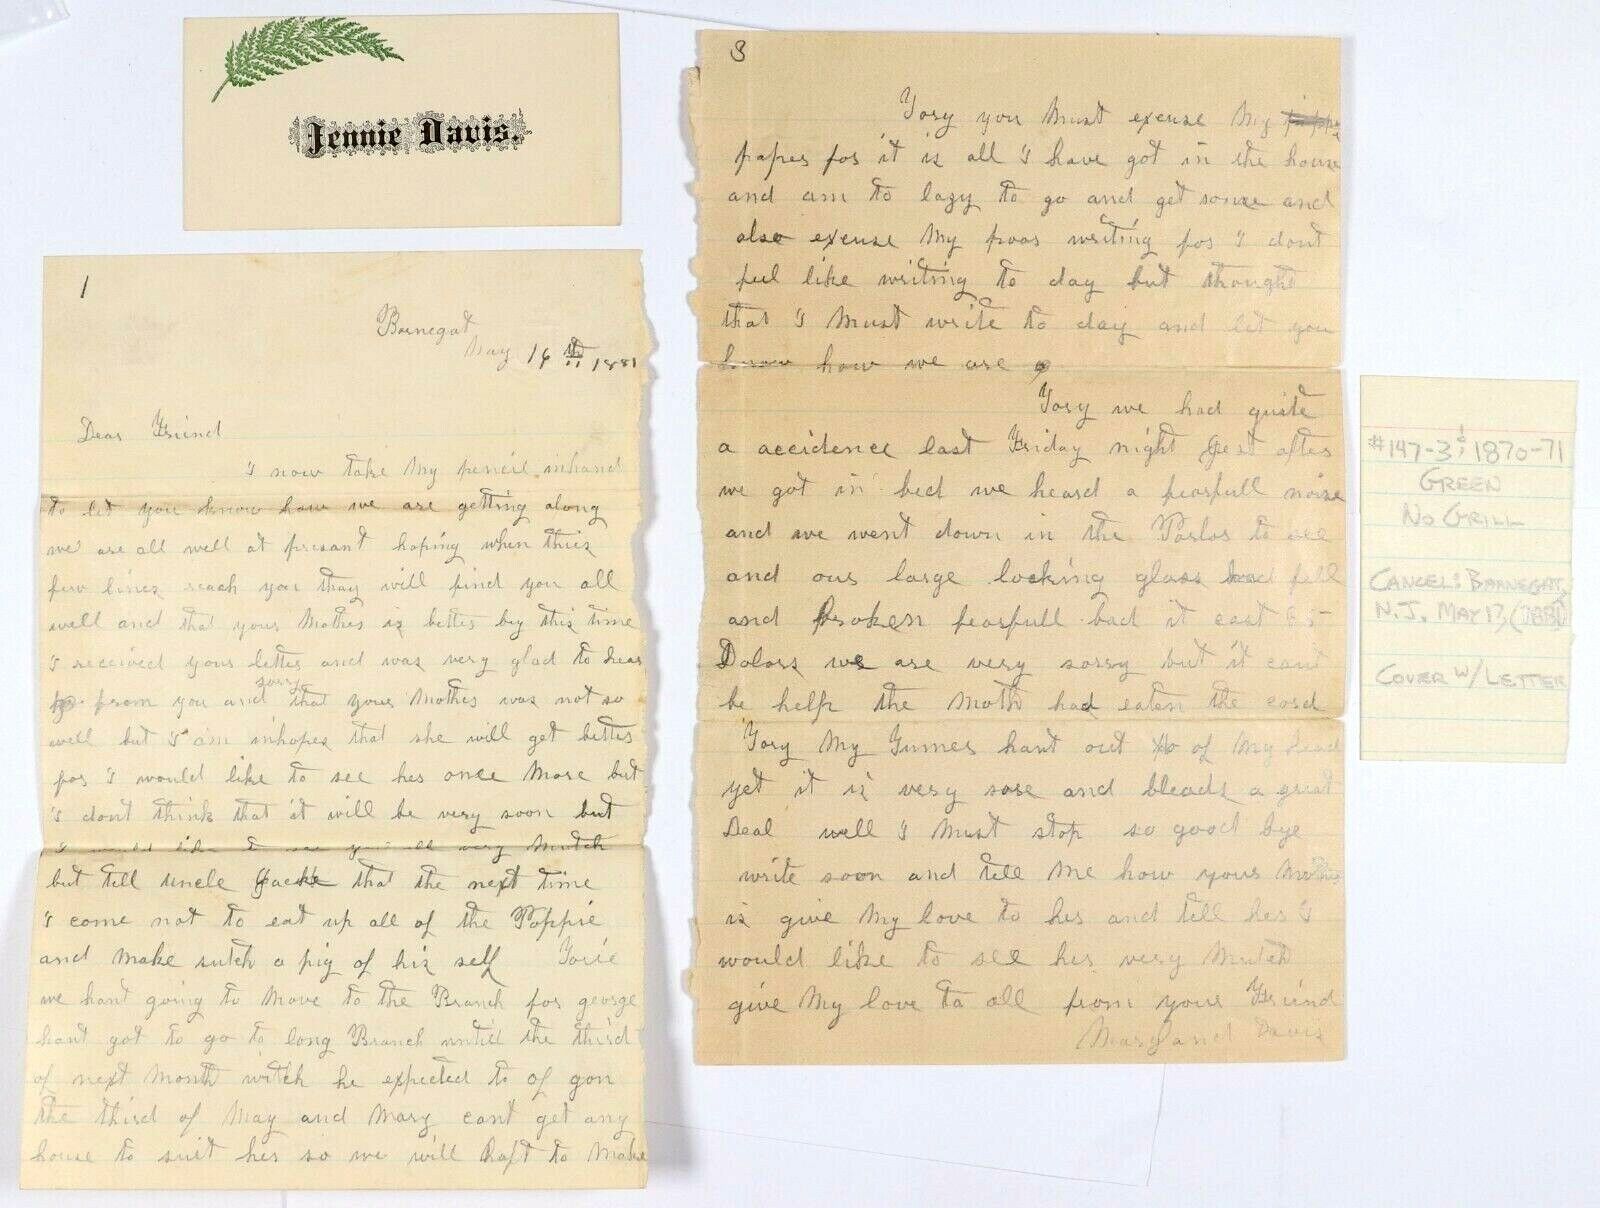 Jennie Davis.
1
Barnegat
May 16th 1881
Dear Friend
I now take My pencil inhand
to let you know how we are getting along
we are all well at presant hoping when thies
few lines reach you thay will find you all
well and that your Mother is better by this time
I received your letter and was very glad to hear
from you and sorry that your Mother was not so
well but I am inhopes that she will get better
for I would like to see her once More but
I dont think that it will be very soon but
I would like to see you all very Mutch
but tell uncle that the next time
I come not to eat up all of the Poppie
and make sutch a pig of his self Torie
we hant going to Move to the Branch for george
hant got to go to long Branch untill the third
of next Month witch he expected to of gon
the third of May and Mary cant get any
house to suit her so we will haft to Make
3
Tory you Must excuse My
paper for it is all I have got in the house
and am to lazy to go and get some and
also excuse My poor writing for I dont
feel like writing to day but thought
that I Must write to day and let you
know how we are
Tory we had quite
a accidence last Friday night Jest after
we got in bed we heard a fearfull noise
and we went down in the Parlor to see
and our large looking glass had fell
and broken fearfull bad it cost
Dolars we are very sorry but it cant
be help the Moth had eaten the cord
Tory My Gumes hant out of My head
yet it is very sore and bleads a great
Deal well I Must stop so good bye
write soon and tell Me how your Mother
is give My love to her and tell her I
would like to see her very Mutch
give My love to all from your Friend
Mary and Davis
#147-3¢ 1870-71
GREEN
NO GRILL
CANCEL: BARNEGAT,
N.J. MAY 17, (1881)
COVER W/ LETTER